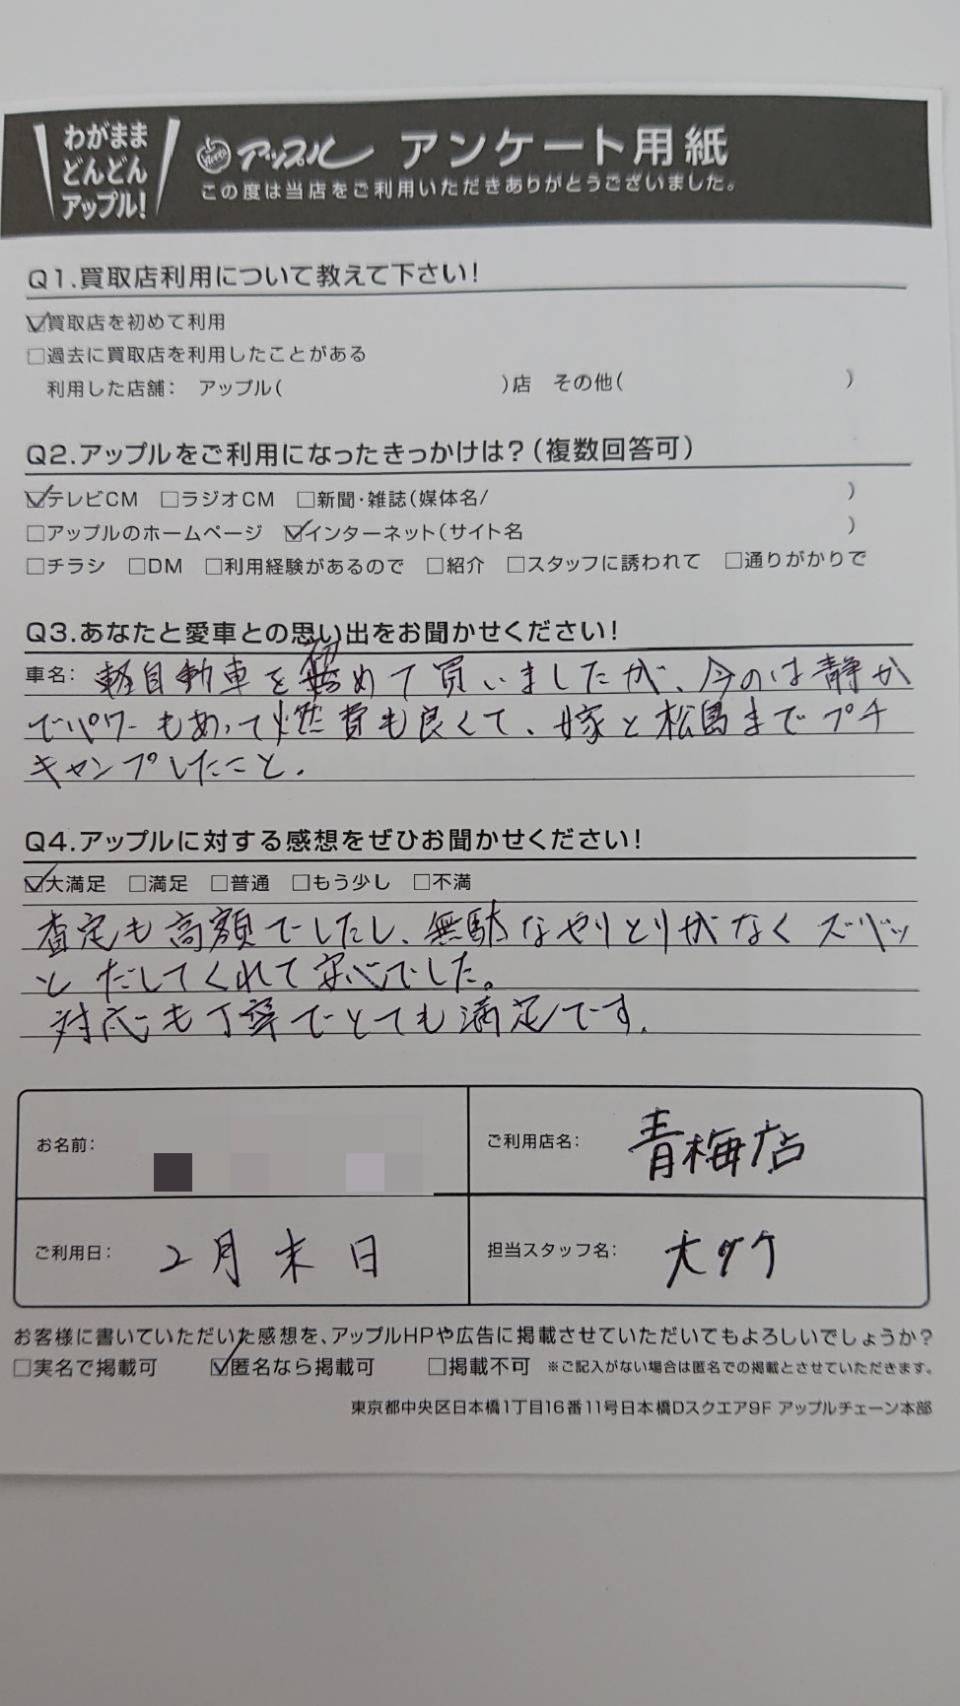 わがまま
どんどん
アップル!
アップル アンケート用紙
この度は当店をご利用いただきありがとうございました。
Q1.買取店利用について教えて下さい!
☑買取店を初めて利用
□過去に買取店を利用したことがある
利用した店舗: アップル( )店 その他( )
Q2.アップルをご利用になったきっかけは?(複数回答可)
☑テレビCM □ラジオCM □新聞・雑誌(媒体名/ )
□アップルのホームページ ☑インターネット(サイト名 )
□チラシ □DM □利用経験があるので □紹介 □スタッフに誘われて □通りがかりで
Q3.あなたと愛車との思い出をお聞かせください!
車名: 軽自動車を初めて買いましたが、今のは静か
でパワーもあって燃費も良くて、嫁と松島までプチ
キャンプしたこと.
Q4.アップルに対する感想をぜひお聞かせください!
☑大満足 □満足 □普通 □もう少し □不満
査定も高額でしたし、無駄なやりとりがなくズバッ
とだしてくれて安心でした。
対応も丁寧でとても満足です.
お名前:
ご利用店名: 青梅店
ご利用日: 2月末日
担当スタッフ名: 大タケ
お客様に書いていただいた感想を、アップルHPや広告に掲載させていただいてもよろしいでしょうか?
□実名で掲載可 ☑匿名なら掲載可 □掲載不可 ※ご記入がない場合は匿名での掲載とさせていただきます。
東京都中央区日本橋1丁目16番11号日本橋Dスクエア9F アップルチェーン本部